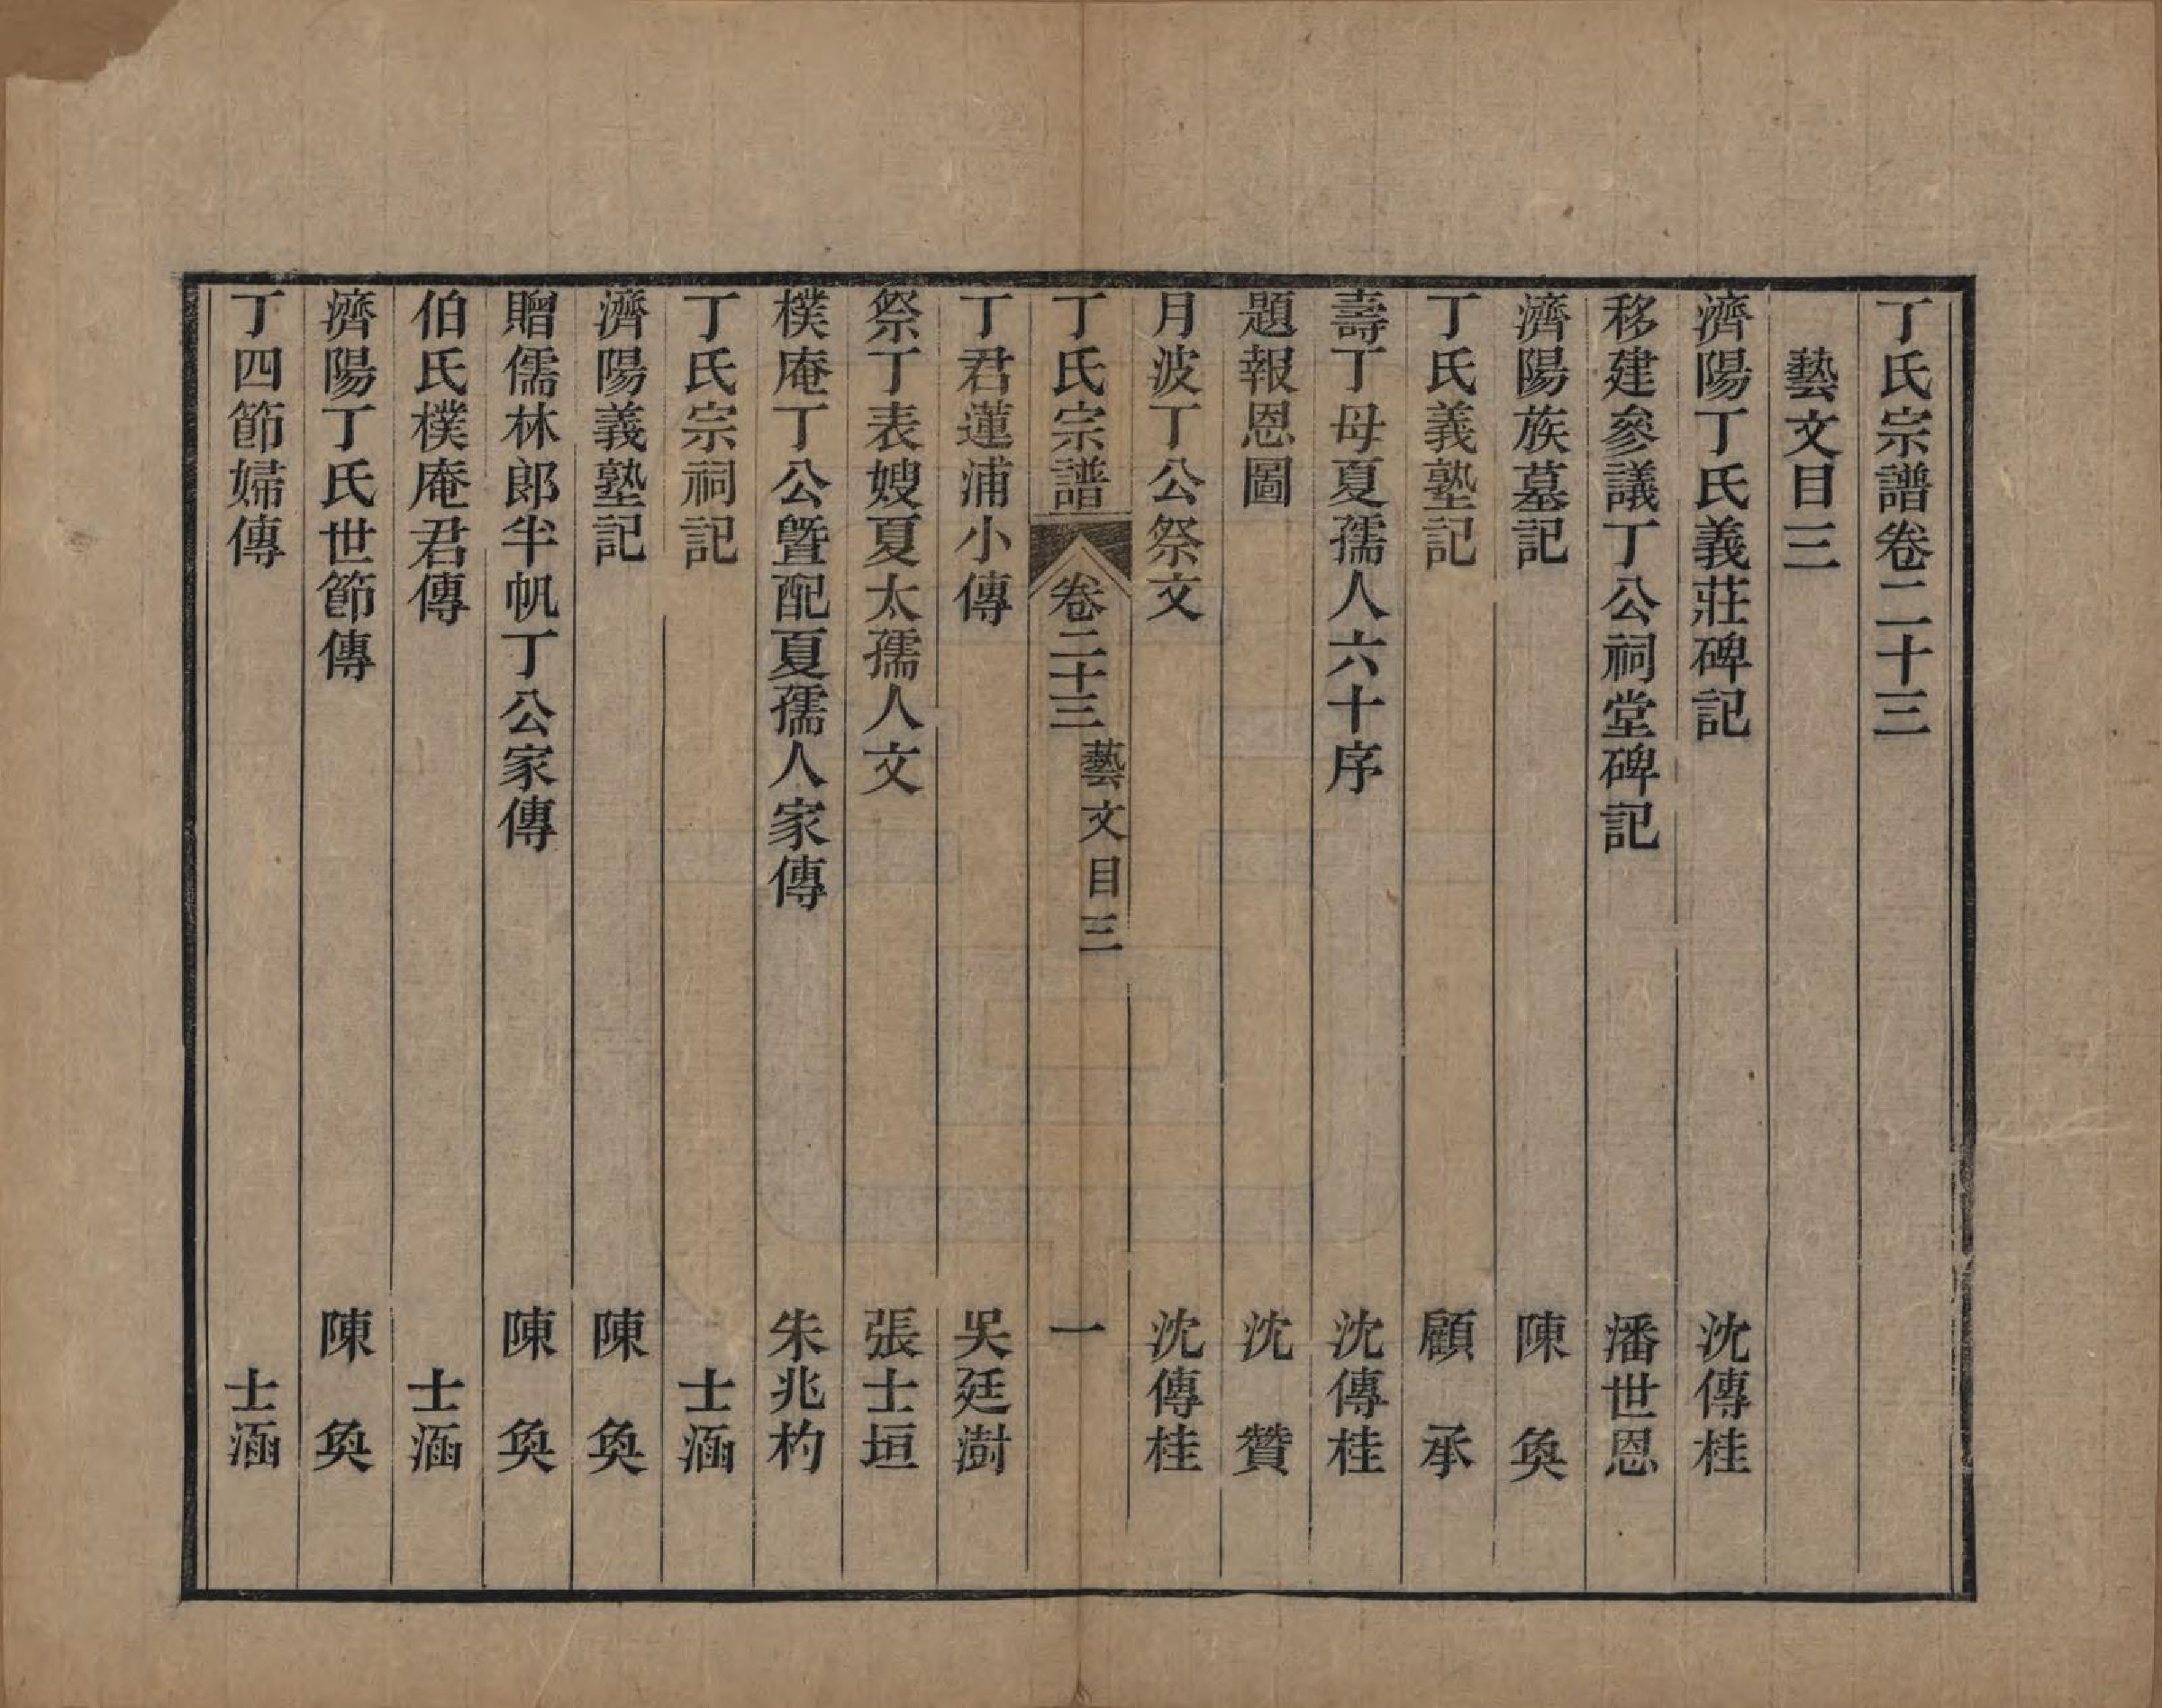 丁氏宗譜卷二十三
藝文目三
濟陽丁氏義莊碑記　沈傳桂
移建參議丁公祠堂碑記　潘世恩
濟陽族墓記　陳奐
丁氏義塾記　顧承
壽丁母夏孺人六十序　沈傳桂
題報恩圖　沈贊
月波丁公祭文　沈傳桂
丁氏宗譜　卷二十三　藝文目三　一
丁君蓮浦小傳　吳廷澍
祭丁表嫂夏太孺人文　張士垣
樸庵丁公曁配夏孺人家傳　朱兆杓
丁氏宗祠記　士涵
濟陽義塾記　陳奐
贈儒林郎半帆丁公家傳　陳奐
伯氏樸庵君傳　士涵
濟陽丁氏世節傳　陳奐
丁四節婦傳　士涵